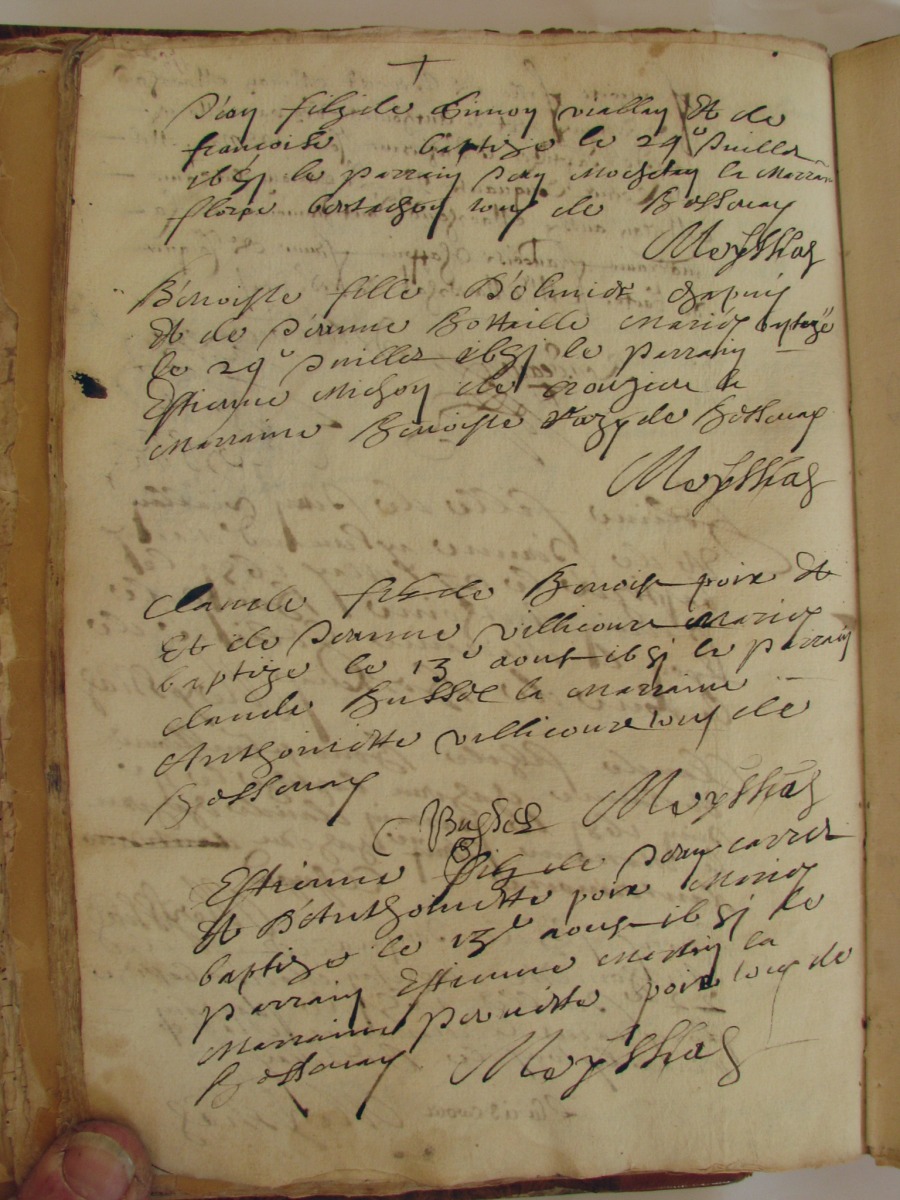 Jean filz de Simon viallay Et de
francoise baptize le 29e Juillet
1651 le parrain Jean la Marrain
florie tous de Bessenay
Meyssias
Benoiste fille D'Esmide Chapuis
Et de Jeanne Bottaille Mariez baptizé
le 29e Juillet 1651 le parrain
Estienne Michon de la
Marraine Benoiste de Bessenay
Meyssias
Claude filz de Benoist poix et
Et de Jeanne villicoure Mariez
baptize le 13e aoust 1651 le parrain
Claude Bussod la Marraine
Anthoinette villicoure tous de
Bessenay
Bussod Meyssias
Estienne filz de Jean carret
Et D'Anthoinette poix Mariez
baptize le 13e aoust 1651 le
parrain Estienne la
Marraine pernette poix tous de
Bessenay
Meyssias